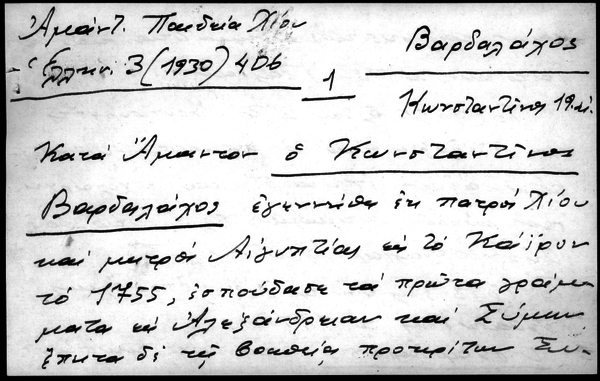 Ἀμάντ. Παιδεία Χίου
Ἑλλην. 3 (1930) 406
1
Βαρδαλάχος
Κωνσταντῖνος 19 αἰ.
Κατά Ἄμαντον ὁ Κωνσταντῖνος
Βαρδαλάχος ἐγεννήθη ἐκ πατρός Χίου
καί μητρός Αἰγυπτίας εἰς τό Κάϊρον
τό 1755, ἐσπούδασε τά πρῶτα γράμ-
ματα εἰς Ἀλεξάνδρειαν καί Σύμην
ἔπειτα δέ τῇ βοηθείᾳ προκρίτων Συ-